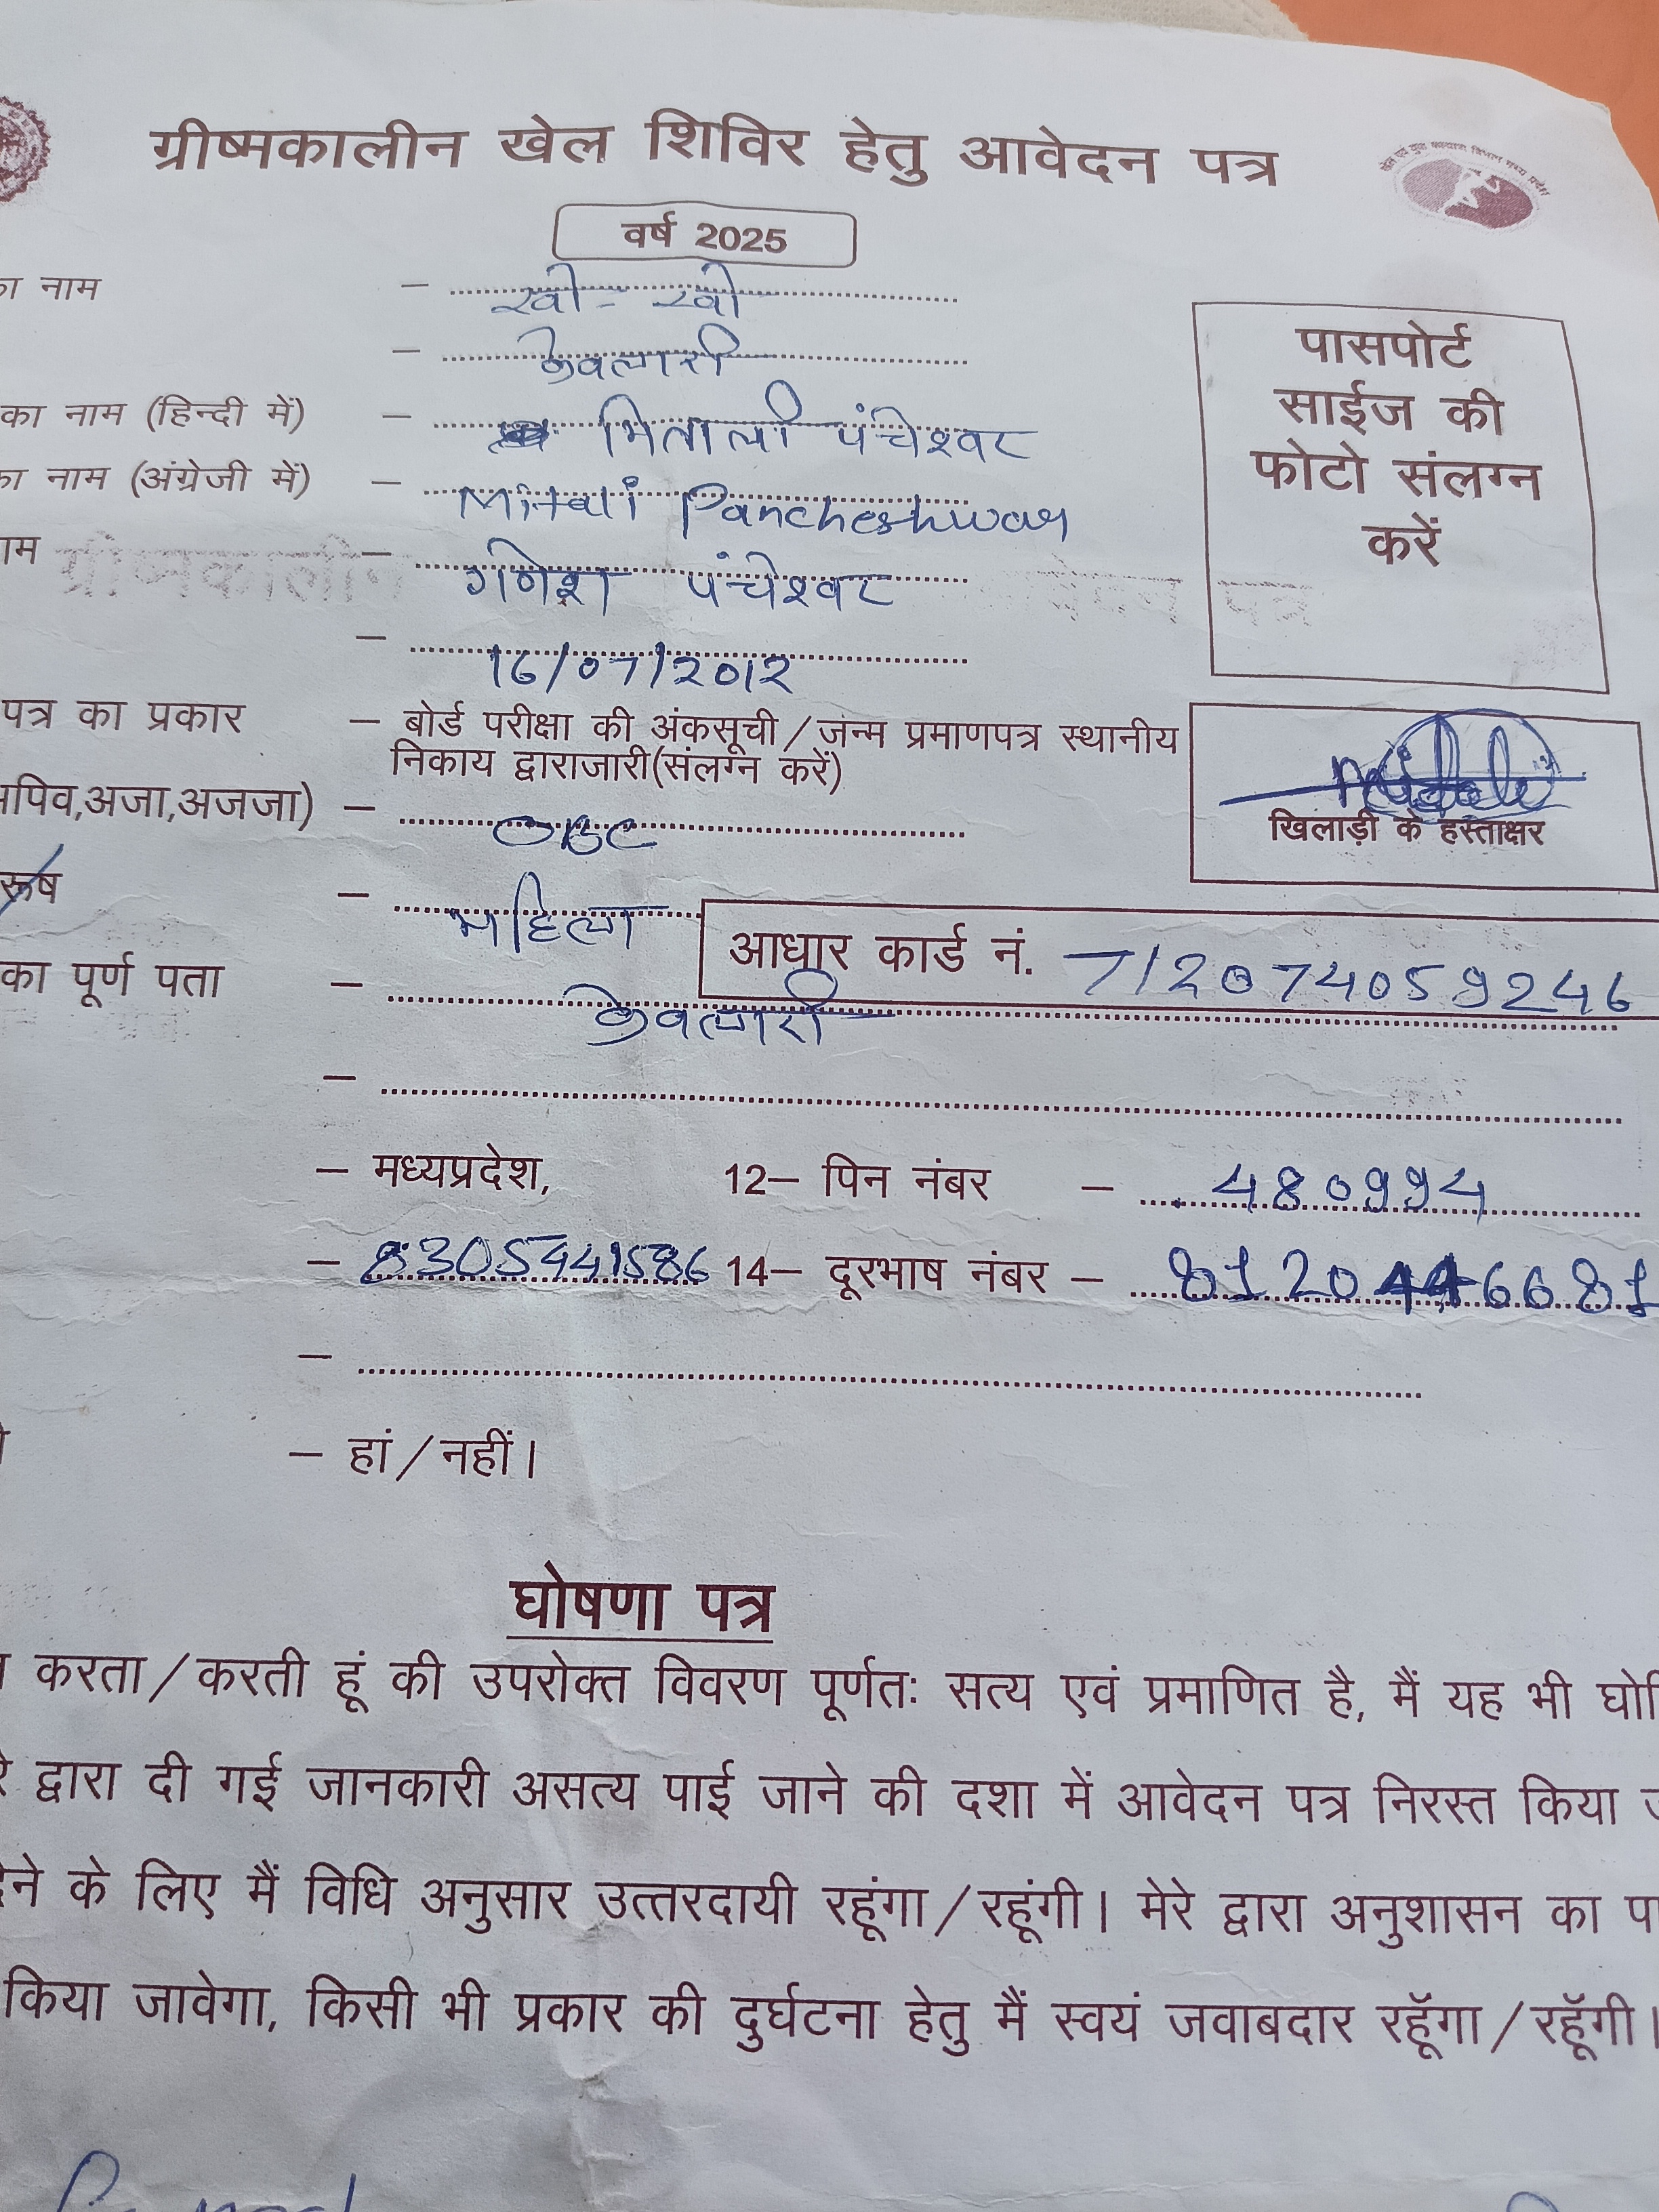 ग्रीष्मकालीन खेल शिविर हेतु आवेदन पत्र
खेल एवं युवा कल्याण विभाग मध्य प्रदेश
वर्ष 2025
नाम – खो-खो
– केवलारी
का नाम (हिन्दी में) – मिताली पंचेश्वर
नाम (अंग्रेजी में) – Mitali Pancheshwar
– गणेश पंचेश्वर
– 16/07/2012
पासपोर्ट
साईज की
फोटो संलग्न
करें
पत्र का प्रकार – बोर्ड परीक्षा की अंकसूची/जन्म प्रमाणपत्र स्थानीय
निकाय द्वाराजारी(संलग्न करें)
अजा,अजजा) – OBC
खिलाड़ी के हस्ताक्षर
– महिला
आधार कार्ड नं. 712074059246
का पूर्ण पता – केवलारी
–
– मध्यप्रदेश, 12– पिन नंबर – 480994
– 8305441586 14– दूरभाष नंबर – 8120446681
–
– हां/नहीं।
घोषणा पत्र
करता/करती हूं की उपरोक्त विवरण पूर्णतः सत्य एवं प्रमाणित है, मैं यह भी
द्वारा दी गई जानकारी असत्य पाई जाने की दशा में आवेदन पत्र निरस्त किया
के लिए मैं विधि अनुसार उत्तरदायी रहूंगा/रहूंगी। मेरे द्वारा अनुशासन का
किया जावेगा, किसी भी प्रकार की दुर्घटना हेतु मैं स्वयं जवाबदार रहूॅगा/रहूॅगी।